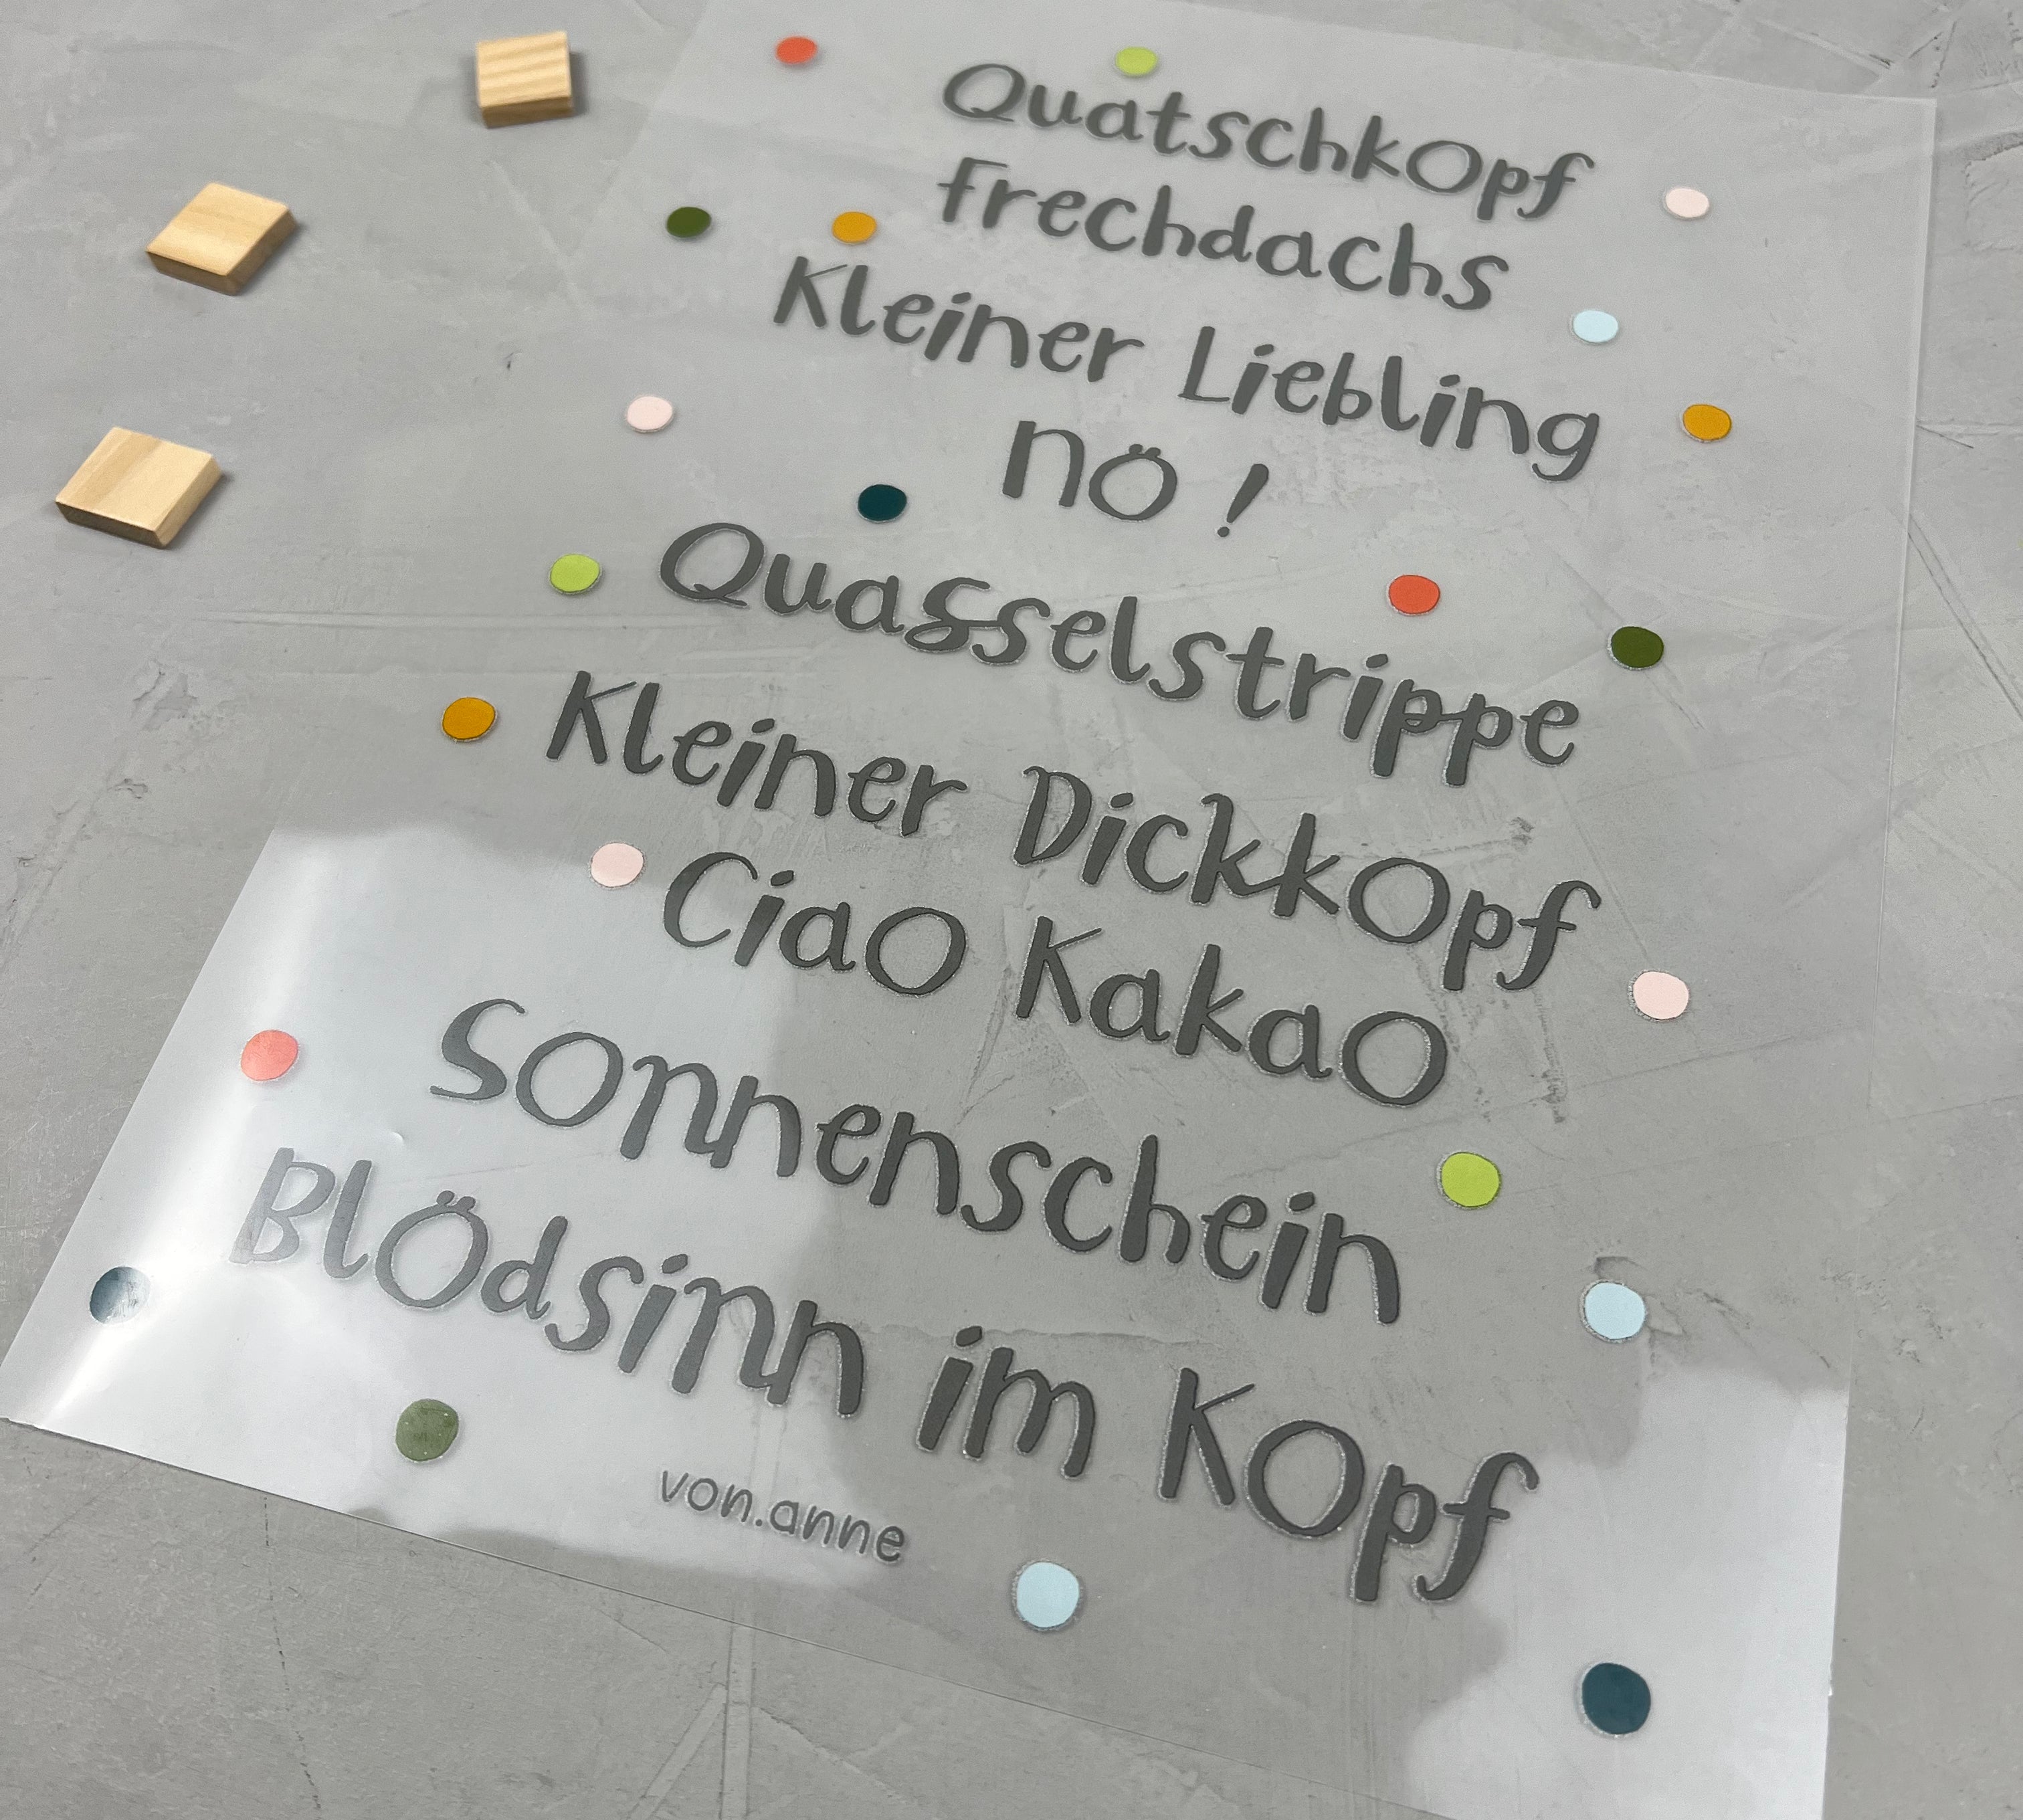 Quatschkopf
frechdachs
Kleiner Liebling
nö !
Quasselstrippe
Kleiner Dickkopf
Ciao Kakao
Sonnenschein
Blödsinn im Kopf
von.anne